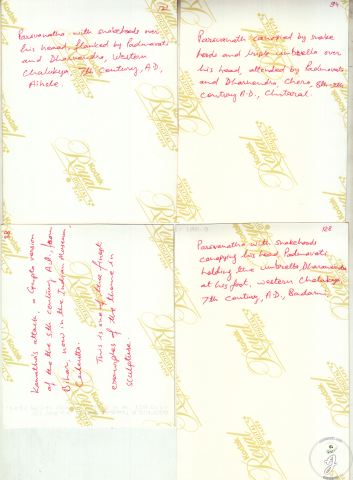 121
Parsvanatha with snakehoods over
his head, flanked by Padmavati
and Dharnendra, Western
Chalukya, 7th Century, A.D.,
Aihole.
94
Parsvanath canopied by snake
hoods and triple umbrella over
his head attended by Padmavati
and Dharnendra Chera, 8th-9th
century A.D., Chitaral.
Kamatha's attack. a Gupta version
of the the 5th century A.D., from
Bihar, now in the Indian Museum,
Calcutta.
This is one of the finest
examples of the theme in
sculpture.
128
Parsvanatha with snakehoods
canopying his head, Padmavati
holding the umbrella, Dharanendra
at his foot, western Chalukya
7th Century, A.D., Badami